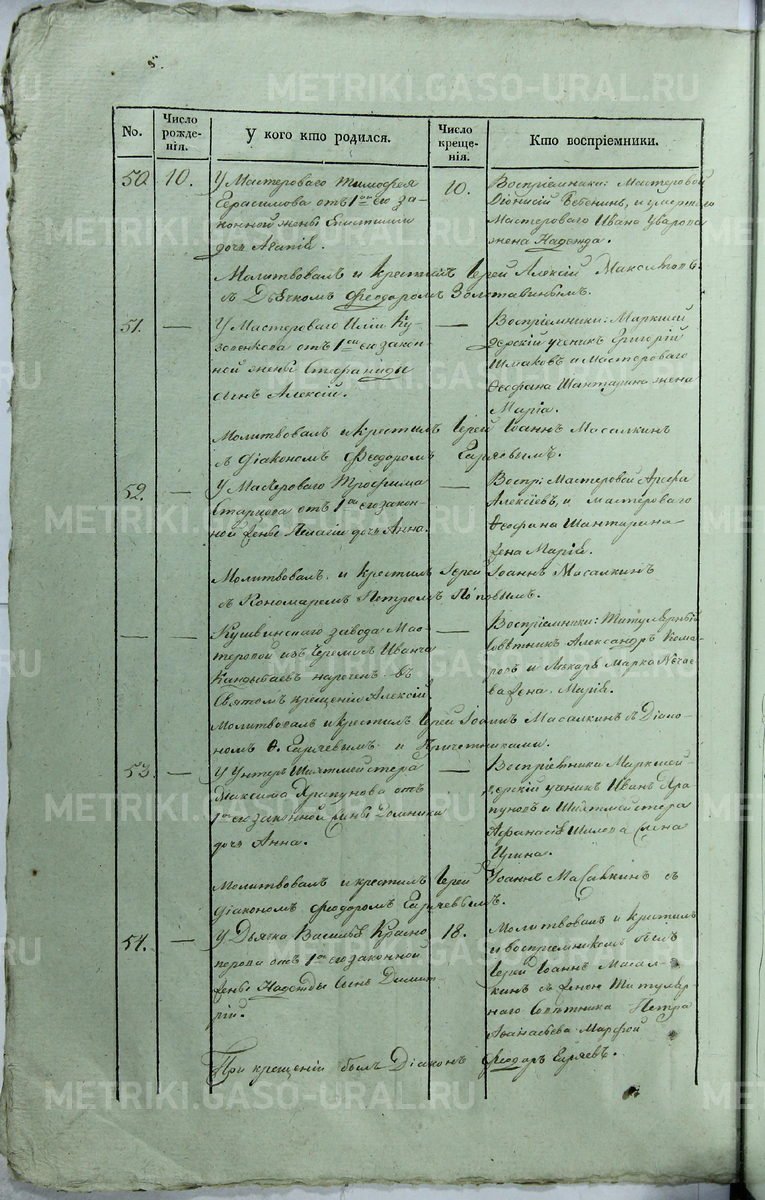 5.
No.
Число рожде-нія.
У кого кто родился.
Число креще-нія.
Кто воспріемники.
50.
10.
У Мастероваго Тимофея
Герасимова отъ 1го его за-
конной жены
дочь Агапія.
10.
Воспріемники: Мастеровой
Діонисій и умершаго
Мастероваго Ивана Уварова
жена Надежда.
Молитвовалъ и крестилъ Іерей Алексій
съ Дьячкомъ Феодоромъ Золотавинымъ.
51.
—
У Мастероваго Иліи Ку-
отъ 1го его закон-
ной жены Стефаниды
сынъ Алексій.
—
Воспріемники: Маркшей
дерскій ученик Григорій
Шмаковъ и Мастероваго
Феофана Шантарина жена
Марія.
Молитвовалъ и крестилъ Іерей Іоаннъ Масалкинъ
съ Діакономъ Феодоромъ Гаряевымъ.
52.
—
У Мастероваго Трофима
Старцова отъ 1го его закон-
ной жены Пелагіи дочь Анна.
—
Воспр: Мастеровой Арефа
Алексіевъ, и мастероваго
Феофана Шантарина
жена Марія.
Молитвовалъ и крестилъ Іерей Іоаннъ Масалкинъ
съ Пономаремъ Петромъ Поповымъ.
—
—
Кушвинскаго завода Мас-
теровой изъ Черемисъ Иванча
нареченъ въ
Святомъ крещеніи Алексій.
—
Воспріемники: Титулярный
Совѣтникъ Александръ Кома-
ровъ и Лѣкаря Марка Нечае-
ва жена Марія.
Молитвовалъ и крестилъ Іерей Іоаннъ Масалкинъ съ Діако-
номъ Ф. Гаряевымъ и Причетниками.
53.
—
У Унтеръ Шихтмейстера
Максима Храпунова отъ
1го его законной жены Домники
дочь Анна.
—
Воспріемники Маркшей
дерскій ученикъ Иванъ Хра
пуновъ и Шихтмейстера
Афанасія жена
Ирина.
Молитвовалъ и крестилъ Іерей Іоаннъ Масалкинъ съ
Діакономъ Феодоромъ Гаряевымъ.
54.
—
У Дьячка Василья Красно
перова отъ 1го его законной
жены Надежды сынъ Димит
рій.
18.
Молитвовалъ и крестилъ
и воспріемникомъ былъ
Іерей Іоаннъ Масал-
кинъ съ женою Титуляр
наго Совѣтника Петра
Афанасьева Марфой
При крещеніи былъ Діаконъ Феодоръ Гаряевъ.
METRIKI.GASO-URAL.RU